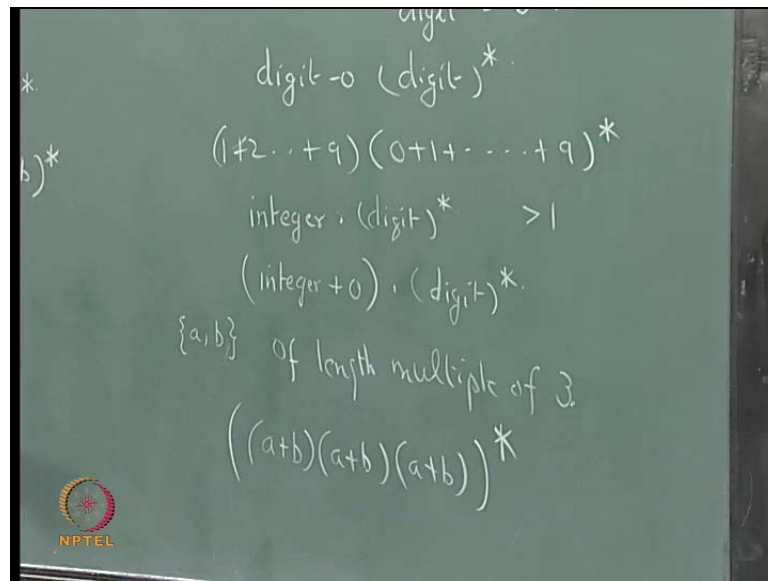 digit
*.
digit-0 (digit)*.
b)*
(1+2..+9)(0+1+----+9)*
integer . (digit)* >1
(integer+0) . (digit)*.
{a,b} of length multiple of 3.
((a+b)(a+b)(a+b))*
NPTEL